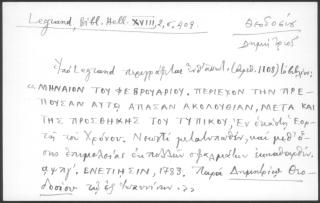 Legrand, Bibl. Hell. XVIII, 2, σ. 409.
Θεοδοσίου
Δημήτριος
Ὑπὸ Legrand περιγράφεται (ἀριθ. 1108)
"ΜΗΝΑΙΟΝ ΤΟΥ ΦΕΒΡΟΥΑΡΙΟΥ. ΠΕΡΙΕΧΟΝ ΤΗΝ ΠΡΕ-
ΠΟΥΣΑΝ ΑΥΤῼ ΑΠΑΣΑΝ ΑΚΟΛΟΥΘΙΑΝ, ΜΕΤΑ ΚΑΙ
ΤΗΣ ΠΡΟΣΘΗΚΗΣ ΤΟΥ ΤΥΠΙΚΟΥ, Ἐν ἑκάστῃ Ἑορ-
τῇ τοῦ Χρόνου. Νεωστὶ μετατυπωθέν, καὶ μεθ' ὅ-
σης ἐπιμελείας ἐκ πολλῶν σφαλμάτων ἐκκαθαρθέν.
͵αψπγ'. ΕΝΕΤΙΗΣΙΝ, 1783. Παρὰ Δημητρίῳ Θεο-
δοσίου τῷ ἐξ Ἰωαννίνων."